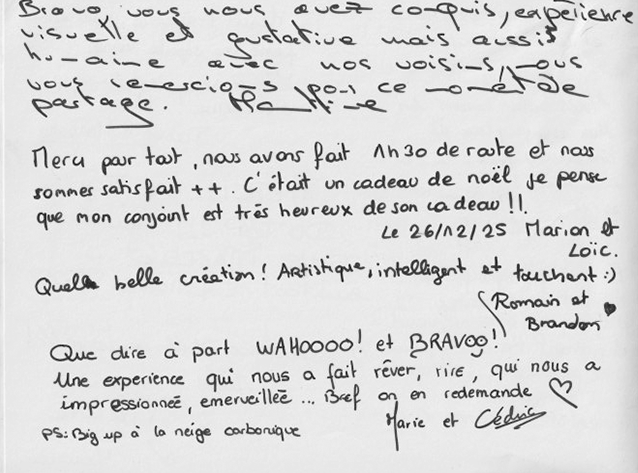 Bravo vous nous avez conquis, expérience
visuelle et gustative mais aussi
humaine avec nos voisins, nous
vous remercions pour ce moment de
partage. Martine
Merci pour tout, nous avons fait 1h30 de route et nous
sommes satisfait ++. C'était un cadeau de noël je pense
que mon conjoint est très heureux de son cadeau !!.
Le 26/12/25 Marion et
Loïc.
Quelle belle création! Artistique, intelligent et touchant :)
Romain et
Brandon ♥
Que dire à part WAHOOOO! et BRAVOO!
Une experience qui nous a fait rêver, rire, qui nous a
impressionnée, emerveillée ... Bref on en redemande ♡
PS: Big up à la neige carbonique Marie et Cédric